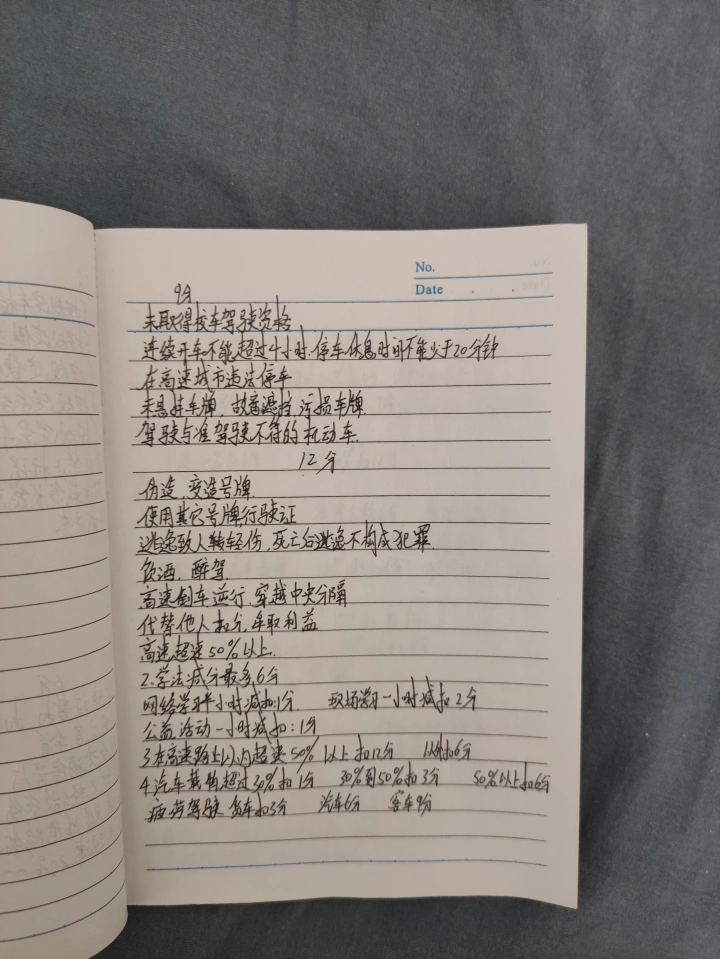 No.
Date
9分
未取得校车驾驶资格
连续开车不能超过4小时.停车休息时间不能少于20分钟
在高速城市违法停车
未悬挂车牌，故意遮挡,污损车牌.
驾驶与准驾驶不符的机动车.
12分
伪造，变造号牌.
使用其它号牌,行驶证
逃逸致人轻伤，死亡后逃逸不构成犯罪.
饮酒，醉驾.
高速倒车逆行，穿越中央分隔
代替他人扣分，牟取利益
高速超速50%以上.
2.学法减分最多6分
网络学习半小时减扣1分 现场学习一小时减扣2分
公益活动一小时减扣：1分
3.在高速路上以内超速50% 以上扣12分 以外扣6分
4.汽车载物超过30%扣1分 30%到50%扣3分 50%以上扣6分
疲劳驾驶 货车扣3分 汽车6分 客车9分